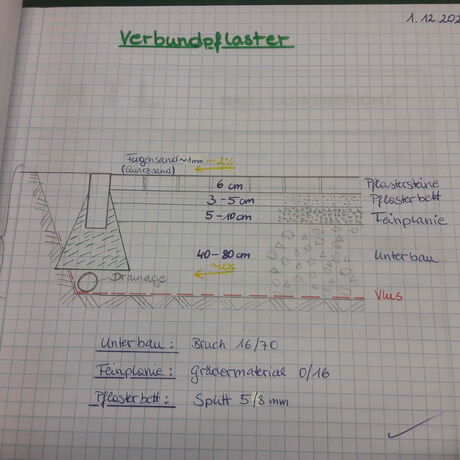 1.12.202
Verbundpflaster
Fugensand ~1mm ~2%
(Quarzsand)
6 cm
Pflastersteine
3-5 cm
Pflasterbett
5-10cm
Feinplanie
40-80cm
Unterbau
~2%
Drainage
Vlies
Unterbau: Bruch 16/70
Feinplanie: Grädermaterial 0/16
Pflasterbett: Splitt 5/8 mm